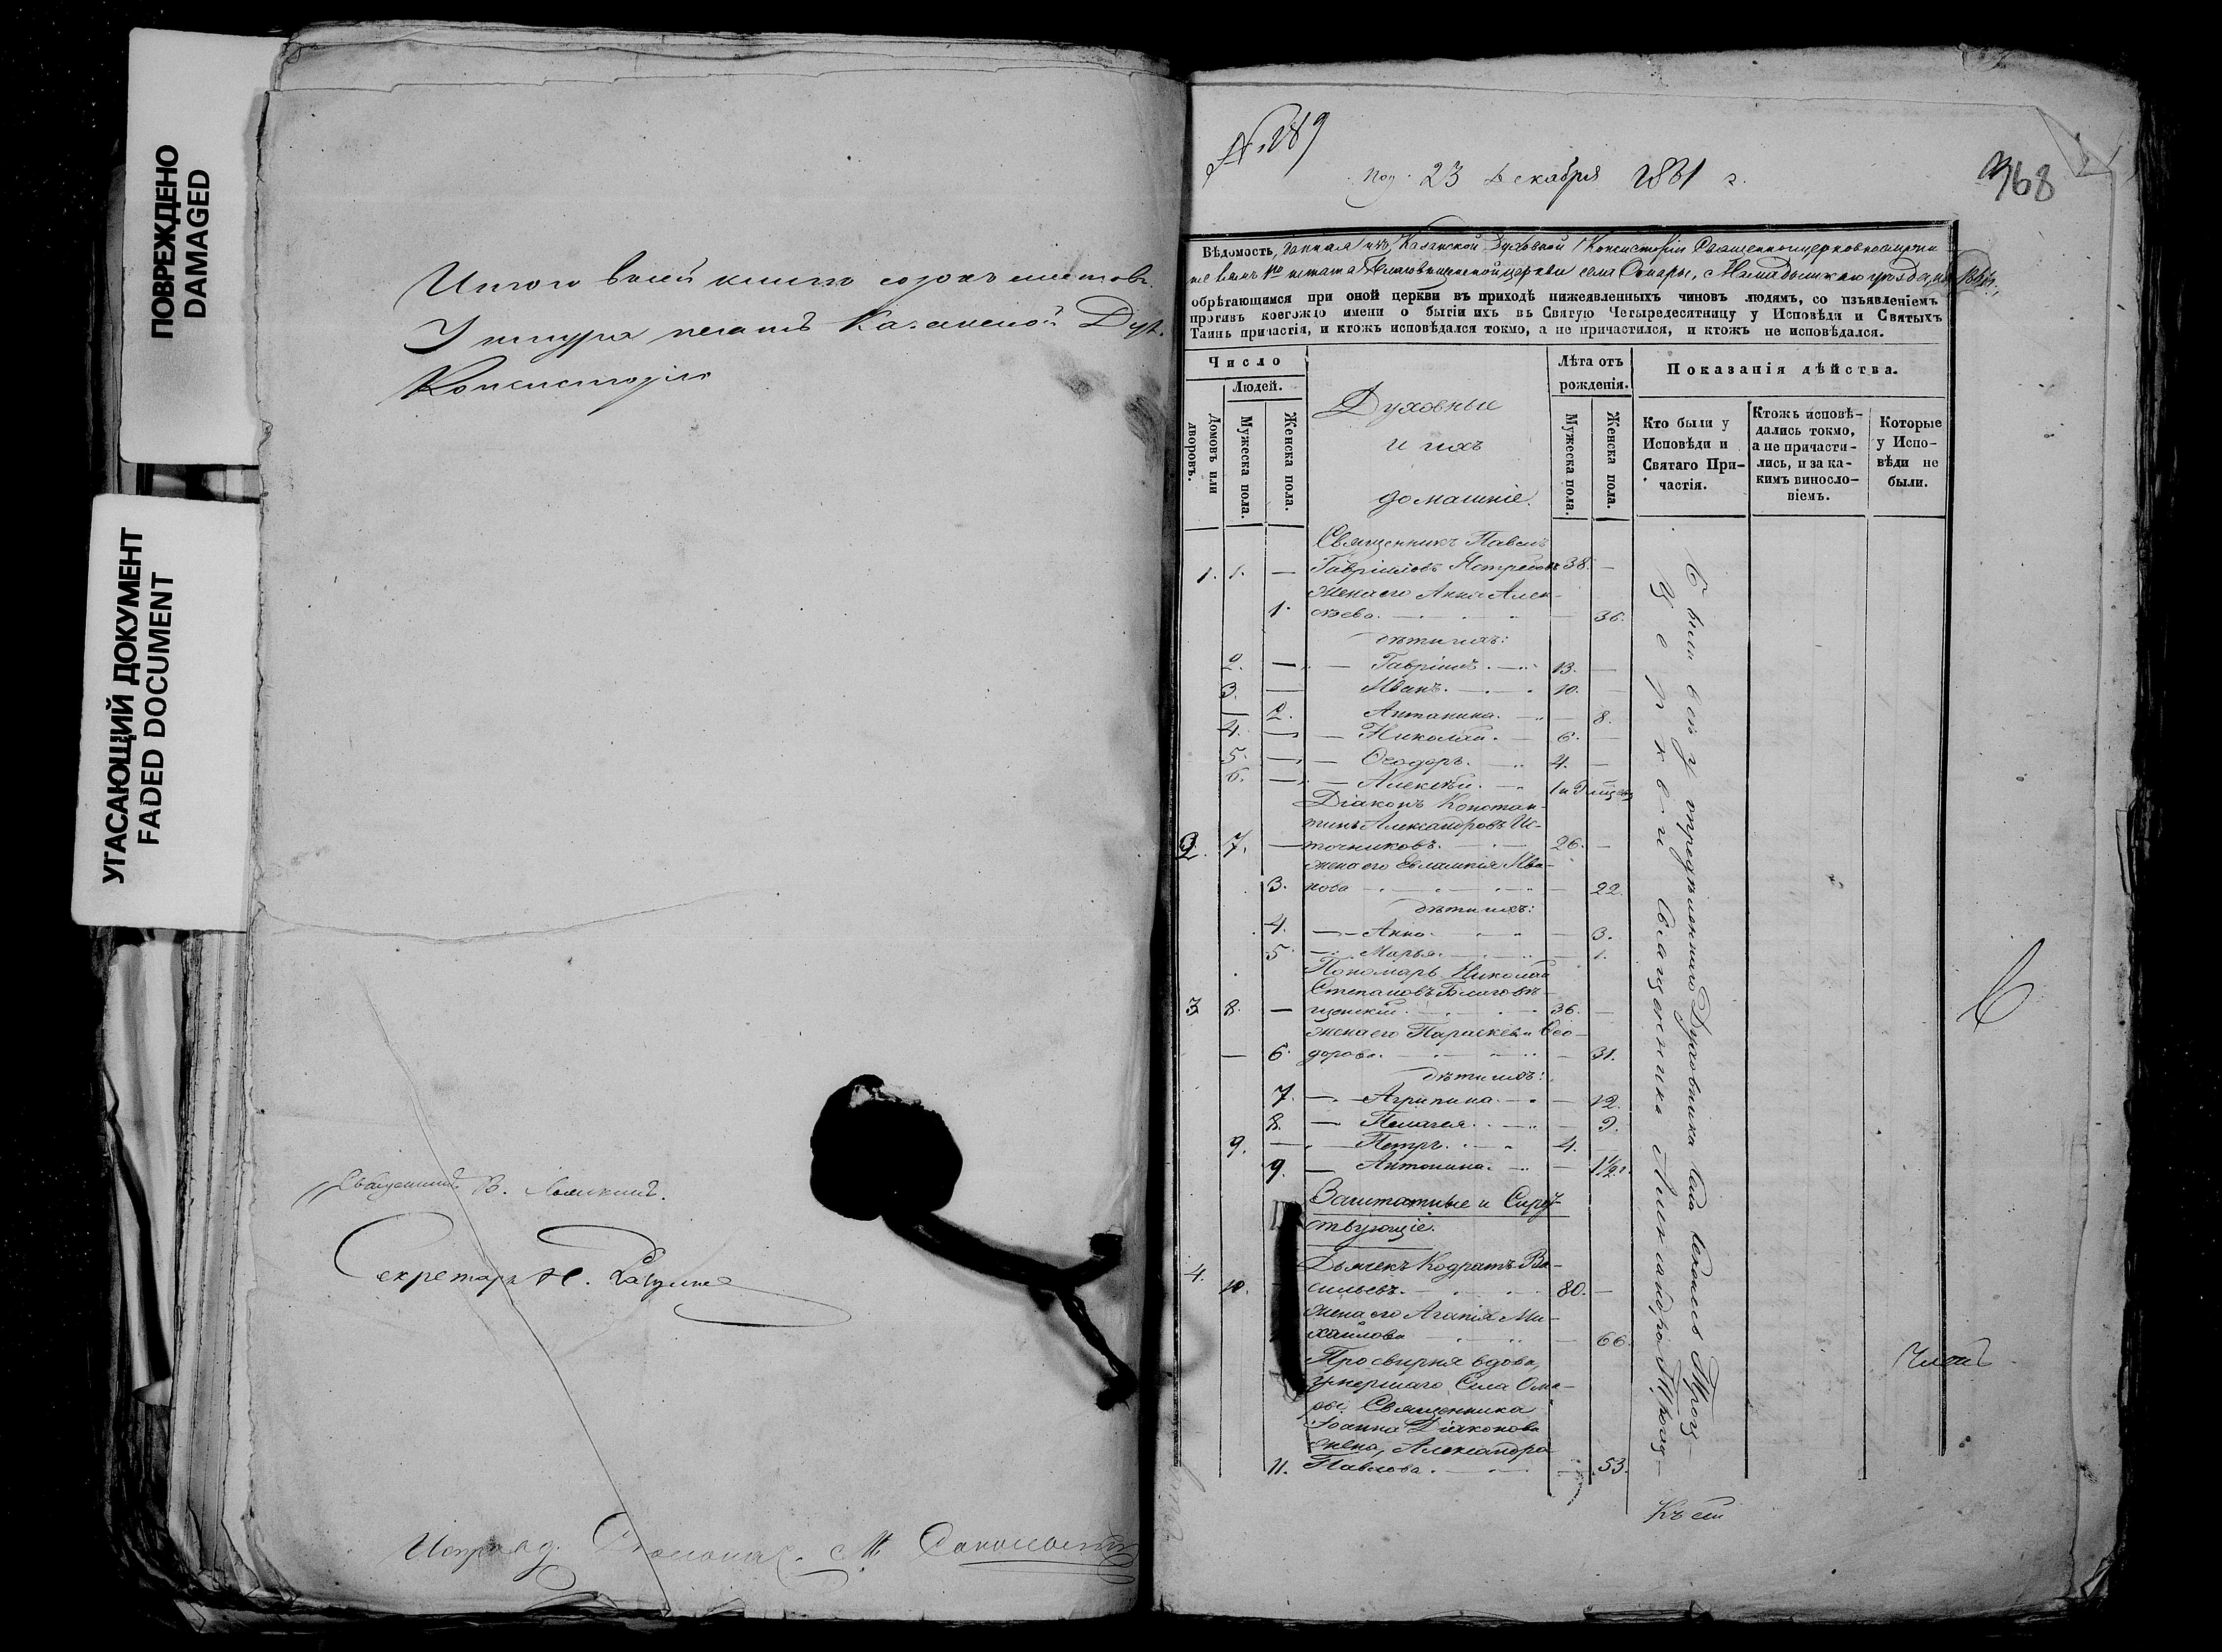 ПОВРЕЖДЕНО
DAMAGED
УГАСАЮЩИЙ ДОКУМЕНТ
FADED DOCUMENT
Итого всей книги сорокъ листовъ.
У шнура печать Казанской Дух.
Консисторіи
Священникъ В.
Секретарь Н.
Исправ. д.
№ 189
Под. 23 Декабря 1861 г.
368
Вѣдомость, данная изъ Казанской Духовной Консисторіи Священноцерковнослужи
Благовѣщенской церкви села Омары, Мамадышскаго уѣзда, на 1861 г.,
обрѣтающимся при оной церкви въ приходѣ нижеявленныхъ чиновъ людямъ, со изъявленіемъ
противъ коегожо имени о бытіи ихъ въ Святую Четыредесятницу у Исповѣди и Святыхъ
Таинъ причастія, и ктожъ исповѣдался токмо, а не причастился, и ктожъ не исповѣдался.
Число
Людей.
Домовъ или дворовъ.
Мужеска пола.
Женска пола.
Духовные
и ихъ
домашніе.
Лѣта отъ
рожденія.
Мужеска пола.
Женска пола.
Показанія дѣйства.
Кто были у
Исповѣди и
Святаго При-
частія.
Ктожъ исповѣ-
дались токмо,
а не причасти-
лись, и за ка-
кимъ винословіемъ.
Которые
у Испо-
вѣди не
были.
Священникъ Павелъ
1. 1. — Гавріиловъ 38. —
жена его Анна Алек-
1. сѣева. — 36.
дѣти ихъ:
2. — Гавріилъ. 13. —
3. — Иванъ. 10. —
— 2. Антонина. — 8.
4. — Николай. 6. —
5. — Ѳеодоръ. 4. —
6. — Алексѣй.
Діаконъ Констан-
тинъ Александровъ Ис-
2. 7. — точниковъ. 26. —
жена его Евлампія Ива-
3. нова — 22.
дѣти ихъ:
4. — Анна. — 3.
5. — Марья. — 1.
Пономарь Николай
Степановъ Благовѣ-
3 8. — щенскій. 36. —
жена его Параскева Ѳео-
— 6. дорова. — 31.
дѣти ихъ:
7. — Агрипина. — 12.
8. — Пелагея. — 9.
9. — Петръ. 4.
9. — Антонина. — 1½ г.
Заштатные и Сиро-
ствующіе.
4. Дьячекъ Кодратъ Ва-
10. сильевъ. 80. —
жена его Агапія Ми-
хайлова — 66.
Просвирня вдова,
умершаго Села Ома-
ры Священника
Іоанна Діаконова
жена, Александра
11. Павлова. — 53.
Были всѣ у опредѣленнаго Духовника Села
Церкви Священника Александра Троиц-
Членъ